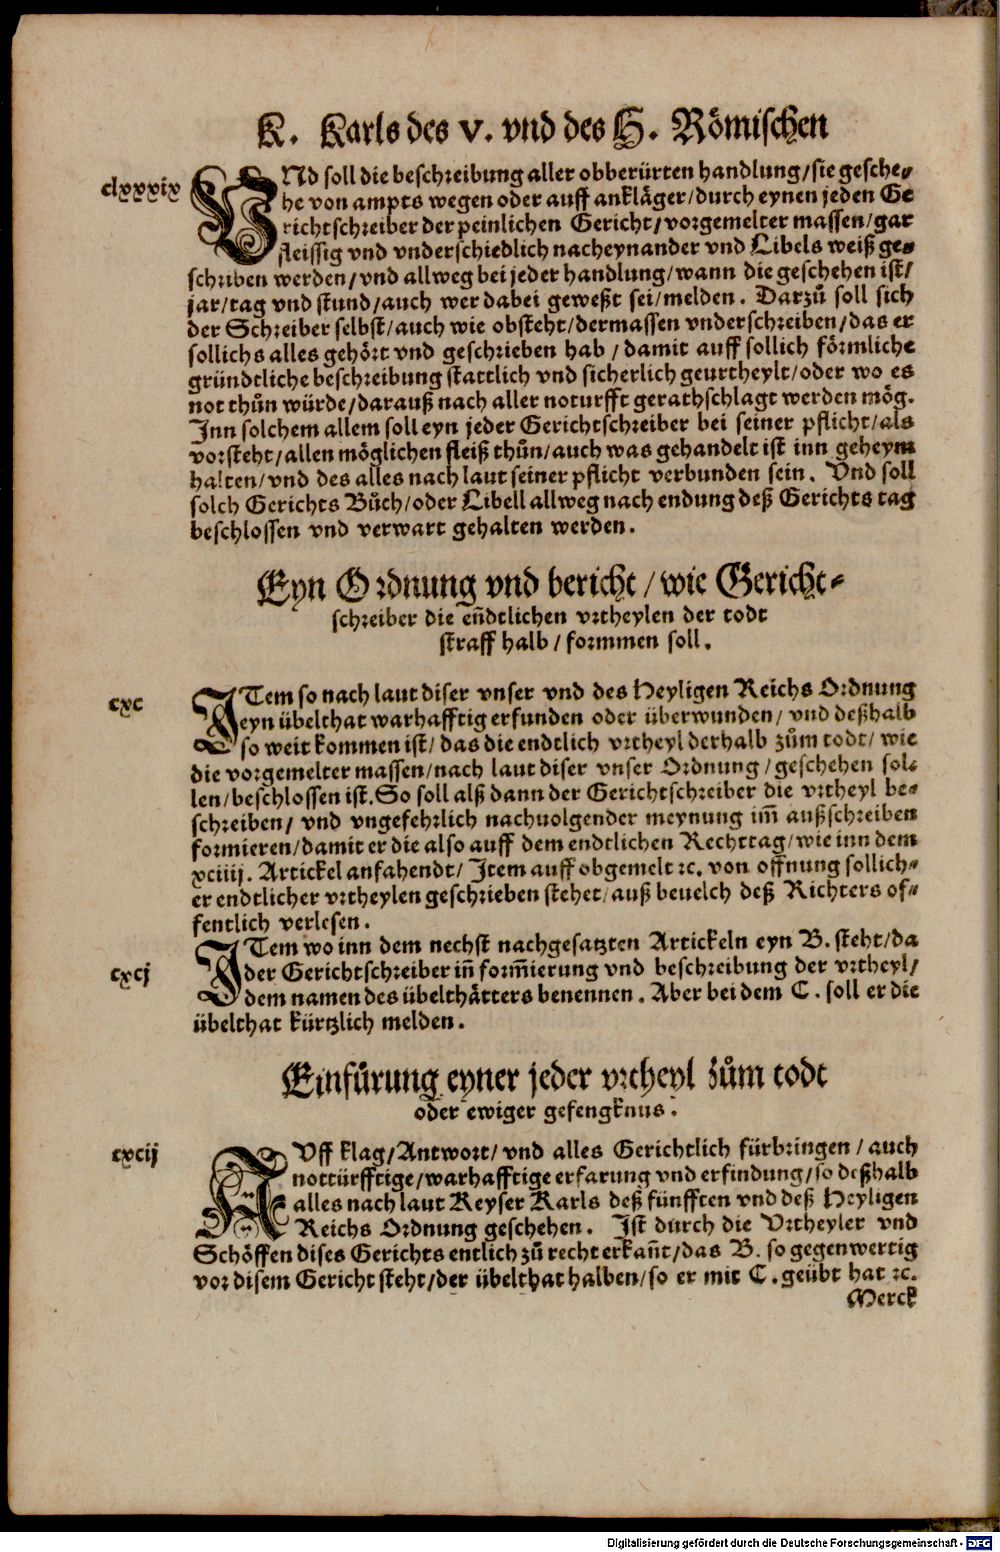 K. Karls des V. vnd des H. Römischen
clxxxix
VNd soll die beschreibung aller obberürten handlung/sie gesche-
he von ampts wegen oder auff ankläger/durch eynen jeden Ge
richtschreiber der peinlichen Gericht/vorgemelter massen/gar
fleissig vnd vnderschiedlich nacheynander vnd Libels weiß ge-
schriben werden/vnd allweg bei jeder handlung/wann die geschehen ist/
jar/tag vnd stund/auch wer dabei geweßt sei/melden. Darzů soll sich
der Schreiber selbst/auch wie obsteht/dermassen vnderschreiben/das er
sollichs alles gehört vnd geschrieben hab/damit auff sollich förmliche
gründtliche beschreibung stattlich vnd sicherlich geurtheylt/oder wo es
not thůn würde/darauß nach aller noturfft gerathschlagt werden mög.
Inn solchem allem soll eyn jeder Gerichtschreiber bei seiner pflicht/als
vorsteht/allen möglichen fleiß thůn/auch was gehandelt ist inn geheym
halten/vnd des alles nach laut seiner pflicht verbunden sein. Vnd soll
solch Gerichts Bůch/oder Libell allweg nach endung deß Gerichts tag
beschlossen vnd verwart gehalten werden.
Eyn Ordnung vnd bericht/wie Gericht-
schreiber die eñdtlichen vrtheylen der todt
straff halb/formmen soll.
cxc
ITem so nach laut diser vnser vnd des Heyligen Reichs Ordnung
eyn übelthat warhafftig erfunden oder überwunden/vnd deßhalb
so weit kommen ist/das die endtlich vrtheyl derhalb zům todt/wie
die vorgemelter massen/nach laut diser vnser Ordnung/geschehen sol-
len/beschlossen ist. So soll alß dann der Gerichtschreiber die vrtheyl be-
schreiben/vnd vngefehrlich nachuolgender meynung im̃ außschreiben
formieren/damit er die also auff dem endtlichen Rechttag/wie inn dem
xciiij. Artickel anfahendt/Item auff obgemelt ꝛc. von offnung sollich-
er endtlicher vrtheylen geschrieben stehet/auß beuelch deß Richters of-
fentlich verlesen.
cxcj
ITem wo inn dem nechst nachgesatzten Artickeln eyn B. steht/da
der Gerichtschreiber iñ form̃ierung vnd beschreibung der vrtheyl/
dem namen des übelthätters benennen. Aber bei dem C. soll er die
übelthat kürtzlich melden.
Einfürung eyner jeder vrtheyl zům todt
oder ewiger gefengknus.
cxcij
AVff klag/Antwort/vnd alles Gerichtlich fürbringen/auch
nottürfftige/warhafftige erfarung vnd erfindung/so deßhalb
alles nach laut Keyser Karls deß fünfften vnd deß Heyligen
Reichs Ordnung geschehen. Ist durch die Vrtheyler vnd
Schöffen dises Gerichts entlich zů recht erkañt/das B. so gegenwertig
vor disem Gericht steht/der übelthat halben/so er mit C. geübt hat ꝛc.
Merck
Digitalisierung gefördert durch die Deutsche Forschungsgemeinschaft - DFG